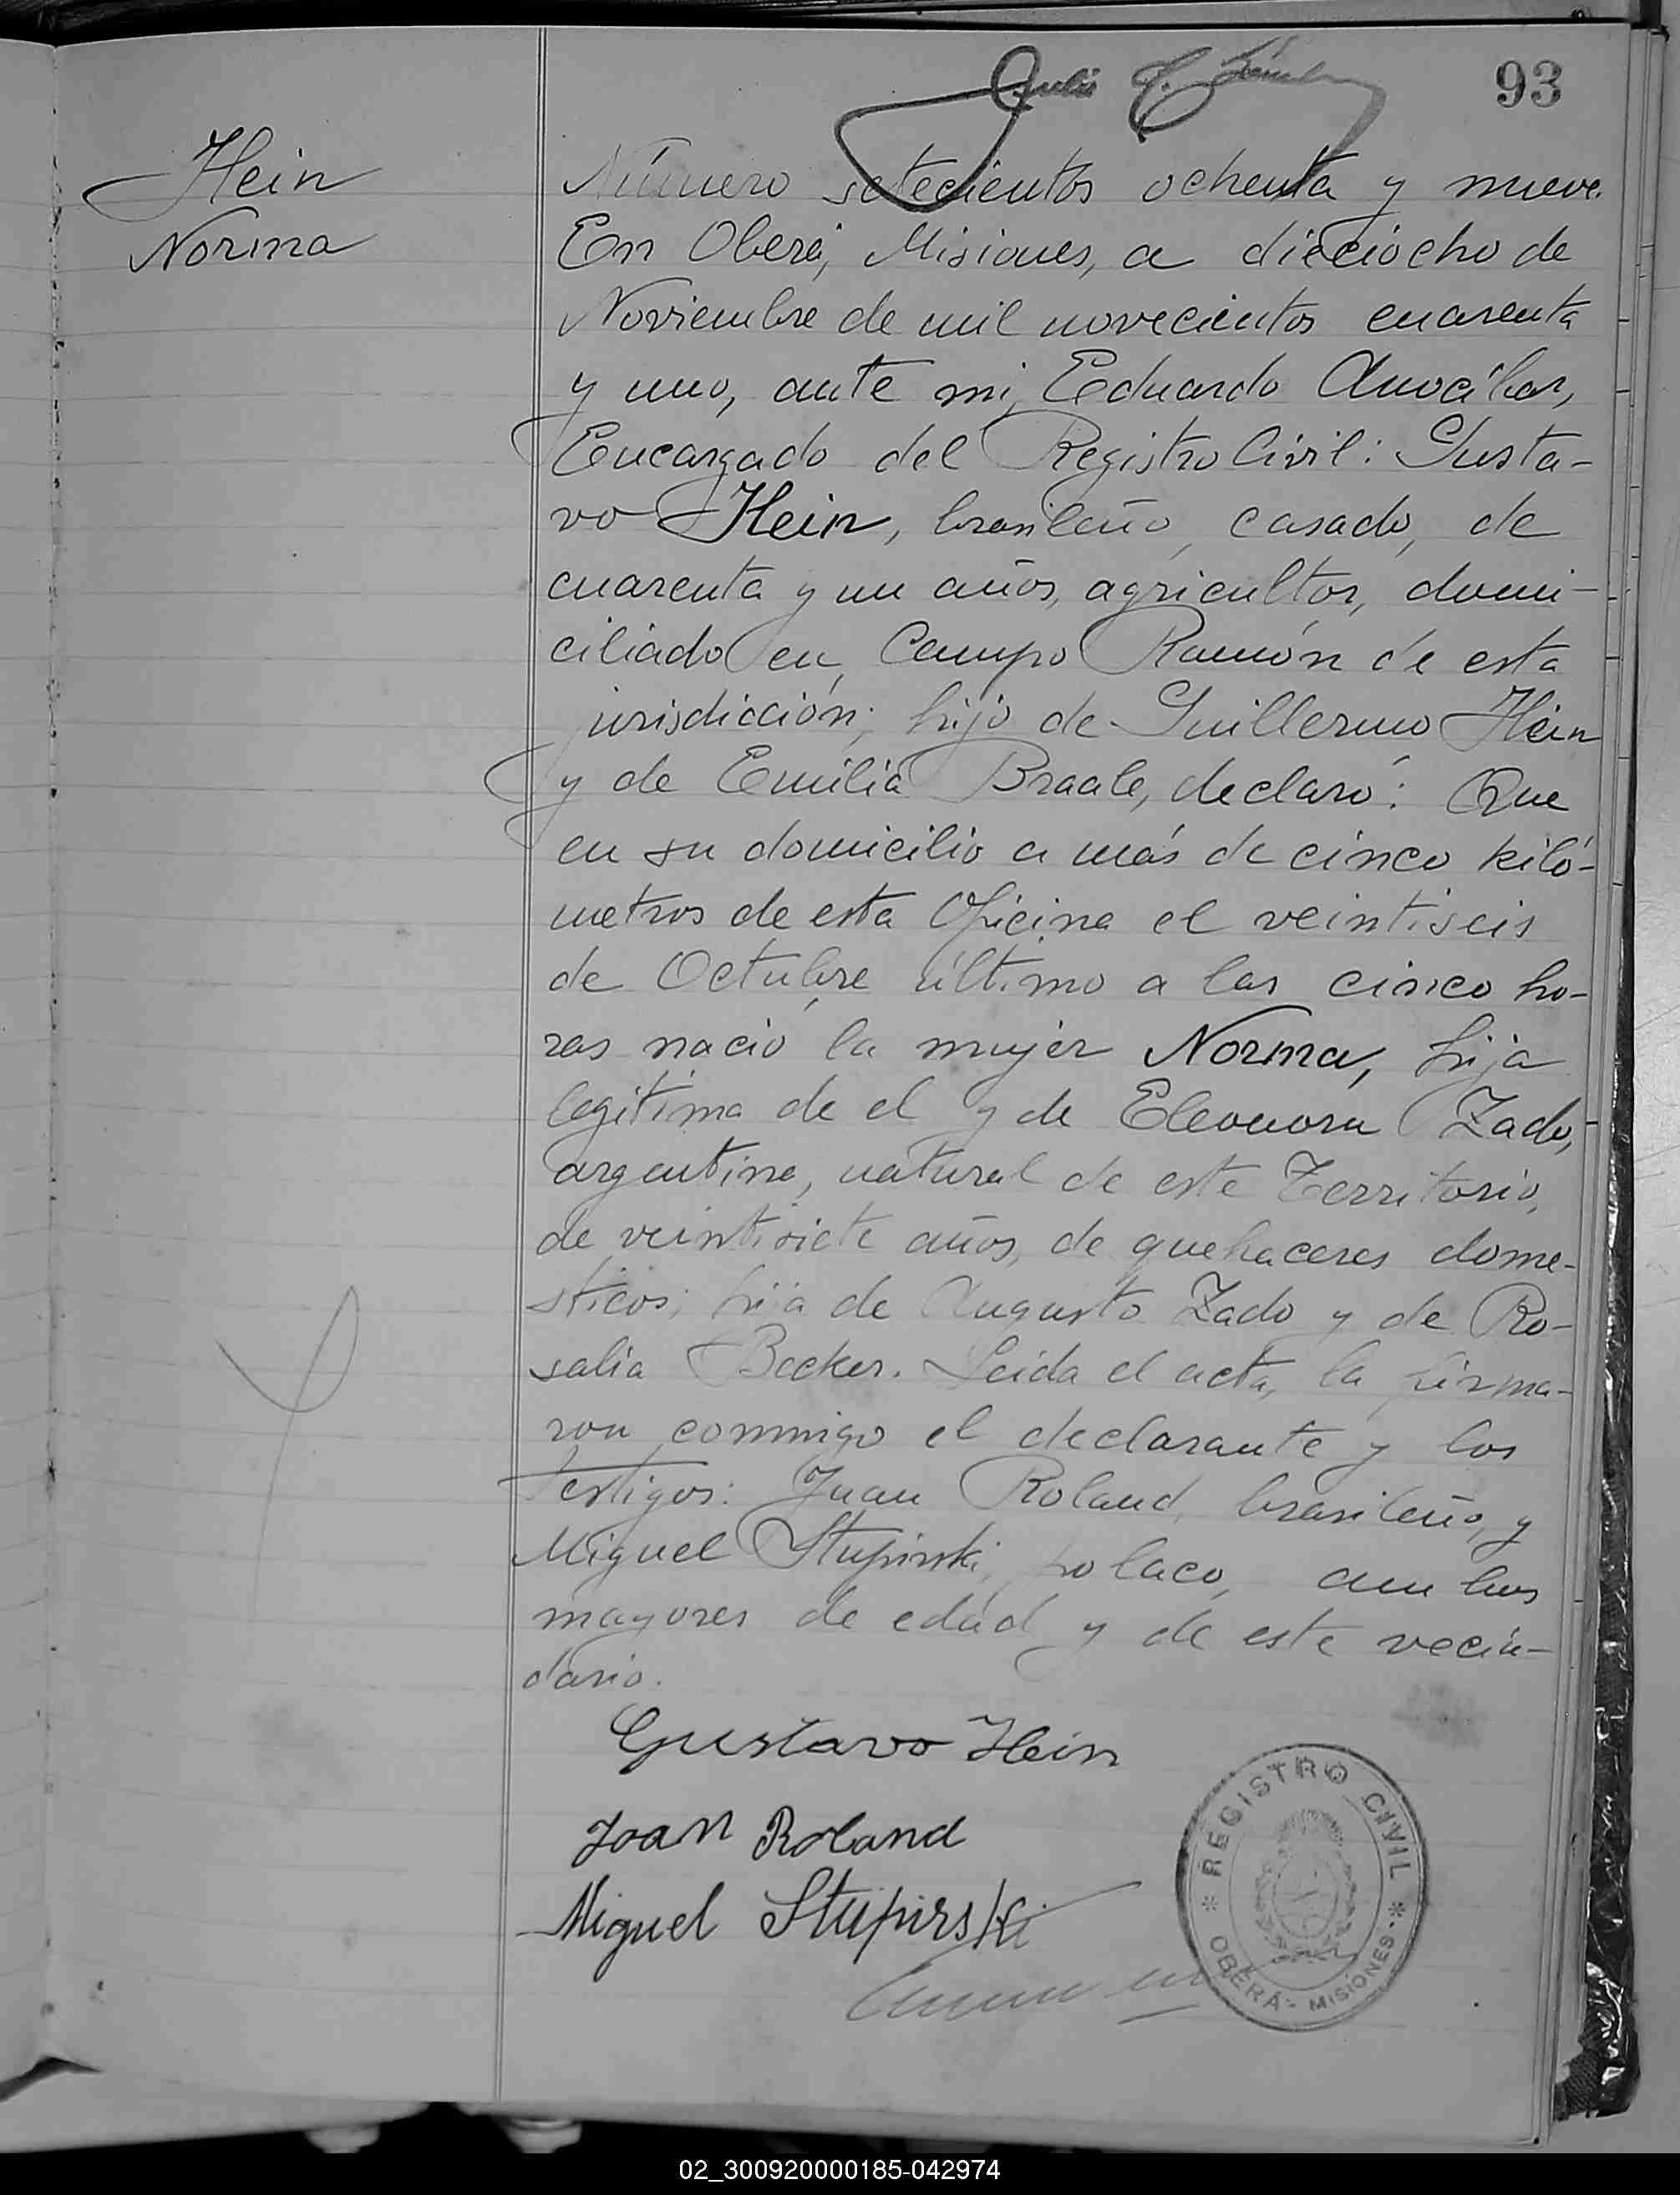 93
Hein
Norma
Número setecientos ochenta y nueve.
En Oberá, Misiones, a dieciocho de
Noviembre de mil novecientos cuarenta
y uno, ante mi, Eduardo
Encargado del Registro Civil: Gusta-
vo Hein, brasileño, casado, de
cuarenta y un años, agricultor, domi-
ciliado en, Campo Ramón de esta
jurisdicción; hijo de Guillermo Hein
y de Emilia Braale, declaró: Que
en su domicilio a más de cinco kiló-
metros de esta Oficina el veintiseis
de Octubre último a las cinco ho-
ras nació la mujer Norma, hija
legitima de el y de Eleonora Zado,
argentina, natural de este Territorio,
de veintisiete años, de quehaceres dome-
sticos; hija de Augusto Zado y de Ro-
salia Becker. Leida el acta, la firma-
ron conmigo el declarante y los
testigos: Juan Roland, brasileño, y
Miguel Stupirski, polaco, ambos
mayores de edad y de este vecin-
dario.
Gustavo Hein
Joan Roland
Miguel Stupirski
REGISTRO CIVIL
OBERÁ - MISIONES
02_300920000185-042974